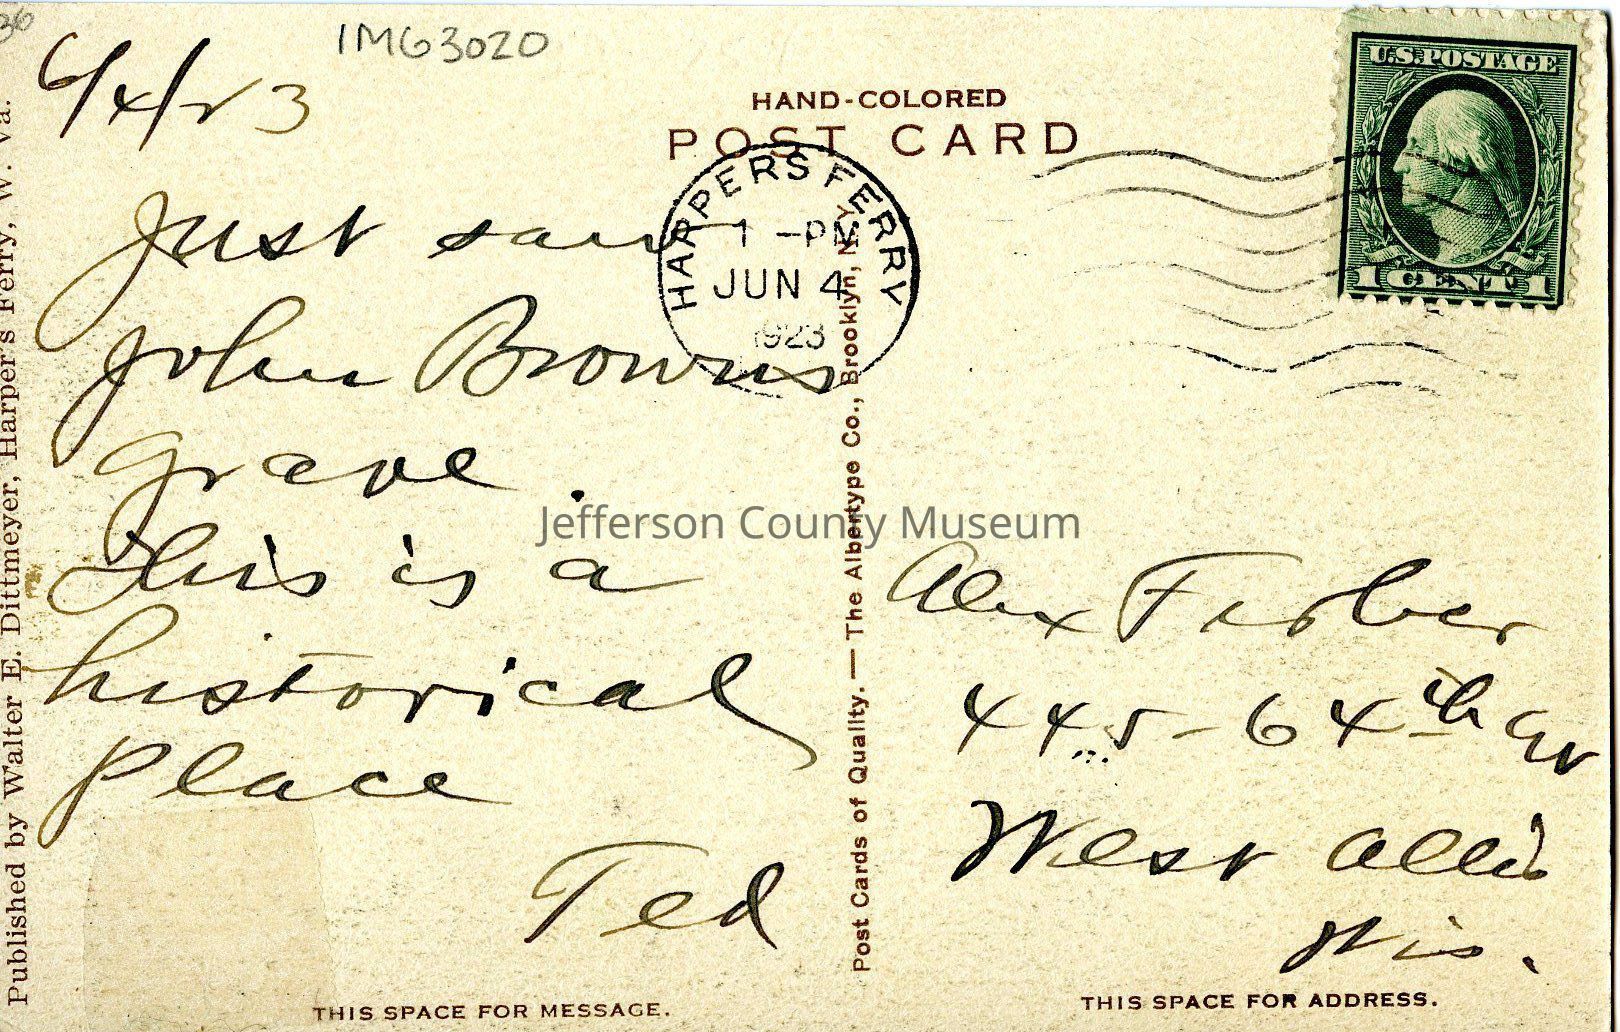 36
IMG3020
6/4/23
Just saw
John Browns
grave.
This is a
historical
place
Ted
HAND-COLORED
POST CARD
HARPERS FERRY
1 -PM
JUN 4
1923
U.S.POSTAGE
1 CENT 1
Jefferson County Museum
Alex
445-64th Av
West Allis
Wis.
Published by Walter E. Dittmeyer, Harper's Ferry, W. Va.
Post Cards of Quality. — The Albertype Co., Brooklyn, N. Y.
THIS SPACE FOR MESSAGE.
THIS SPACE FOR ADDRESS.